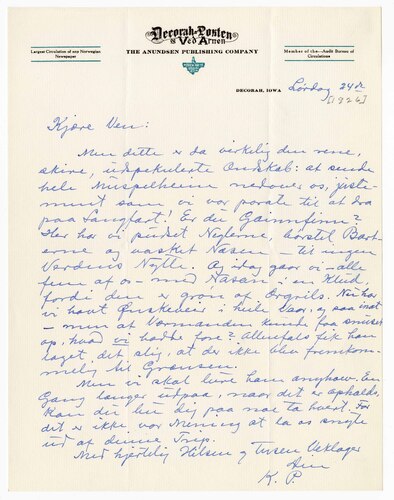 Decorah-Posten
og Ved Arnen
Largest Circulation of any Norwegian
Newspaper
THE ANUNDSEN PUBLISHING COMPANY
Member of the—Audit Bureau of
Circulations
DECORAH, IOWA
Lördag 24de
[1926]
Kjære Ven:
Men dette er da virkelig den rene,
skire, Ondskab: at sende
hele Muspelheim nedover os, juste-
ment som vi var parate til at dra
paa Langfart! Er du Gainnfinn?
Her har vi pudset Neglerne, börstet Bart-
erne og vasket Næsen – til ingen
Verdens Nytte. Og idag gaar vi – alle
fem af os – med Nasan i en Klud,
fordi den er grom af
vi havt Önskeveir i hele Vaar,
– men at Formanden kunde faa
op, hvad vi hadde fore? Allenfals fik han
laget det slig, at der ikke blev fremkom-
melig til Grænsen.
Men vi skal lure ham anyhow. En
Gang længer utpaa, naar det er opholds,
kan du ben dig paa noe ta hvert. For
det er ikke vor Mening at la os snyte
ud af denne Trip.
Med hjertelig Hilsen og Tusen Beklager
Din
K. P.